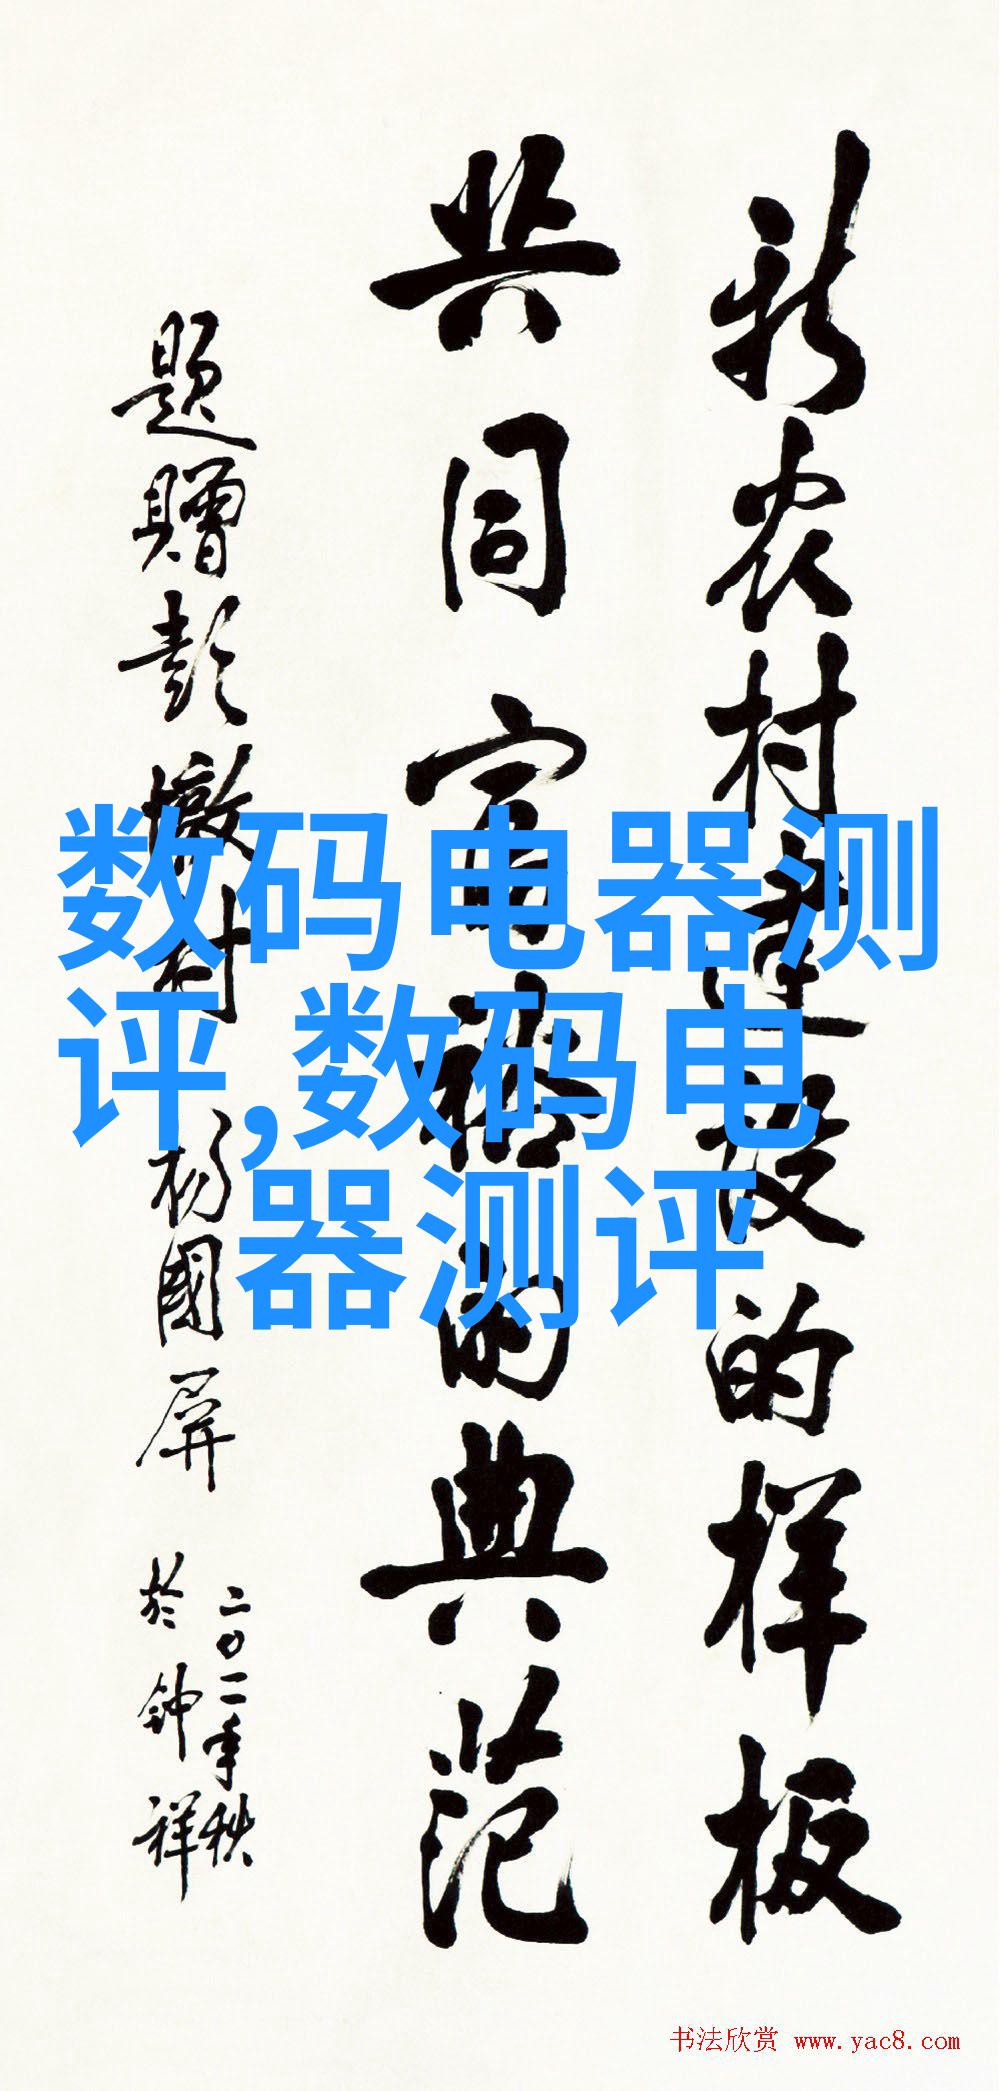 新农村建设的样板
共同富裕的典范
题赠彭墩村 杨国屏
二〇一一年秋
於钟祥
数码电器测
评,数码电
器测评
书法欣赏 www.yac8.com